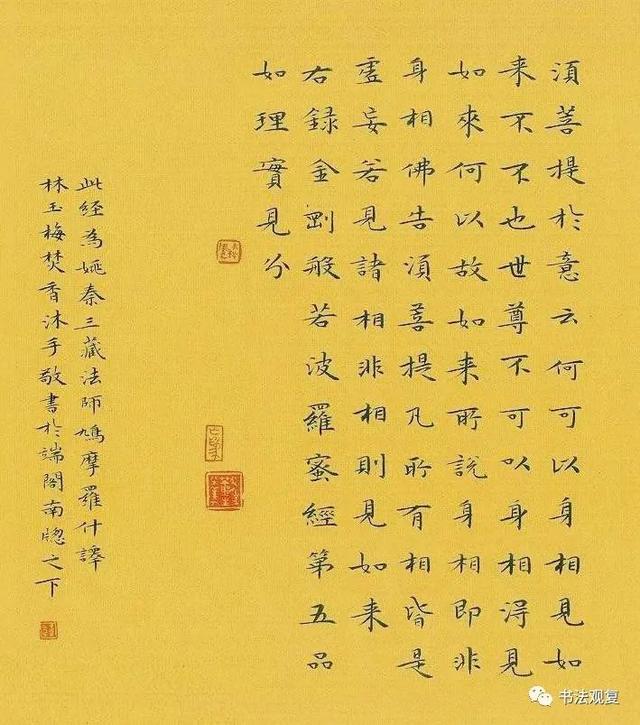 須菩提於意云何可以身相見如
来不不也世尊不可以身相淂見
如來何以故如来所說身相即非
身相佛告須菩提凡所有相皆是
虛妄若見諸相非相則見如来
右録金剛般若波羅蜜經第五品
如理實見分
此経為姚秦三藏法師鳩摩羅什譯
林玉梅焚香沐手敬書於端閣南牕之下
书法观复